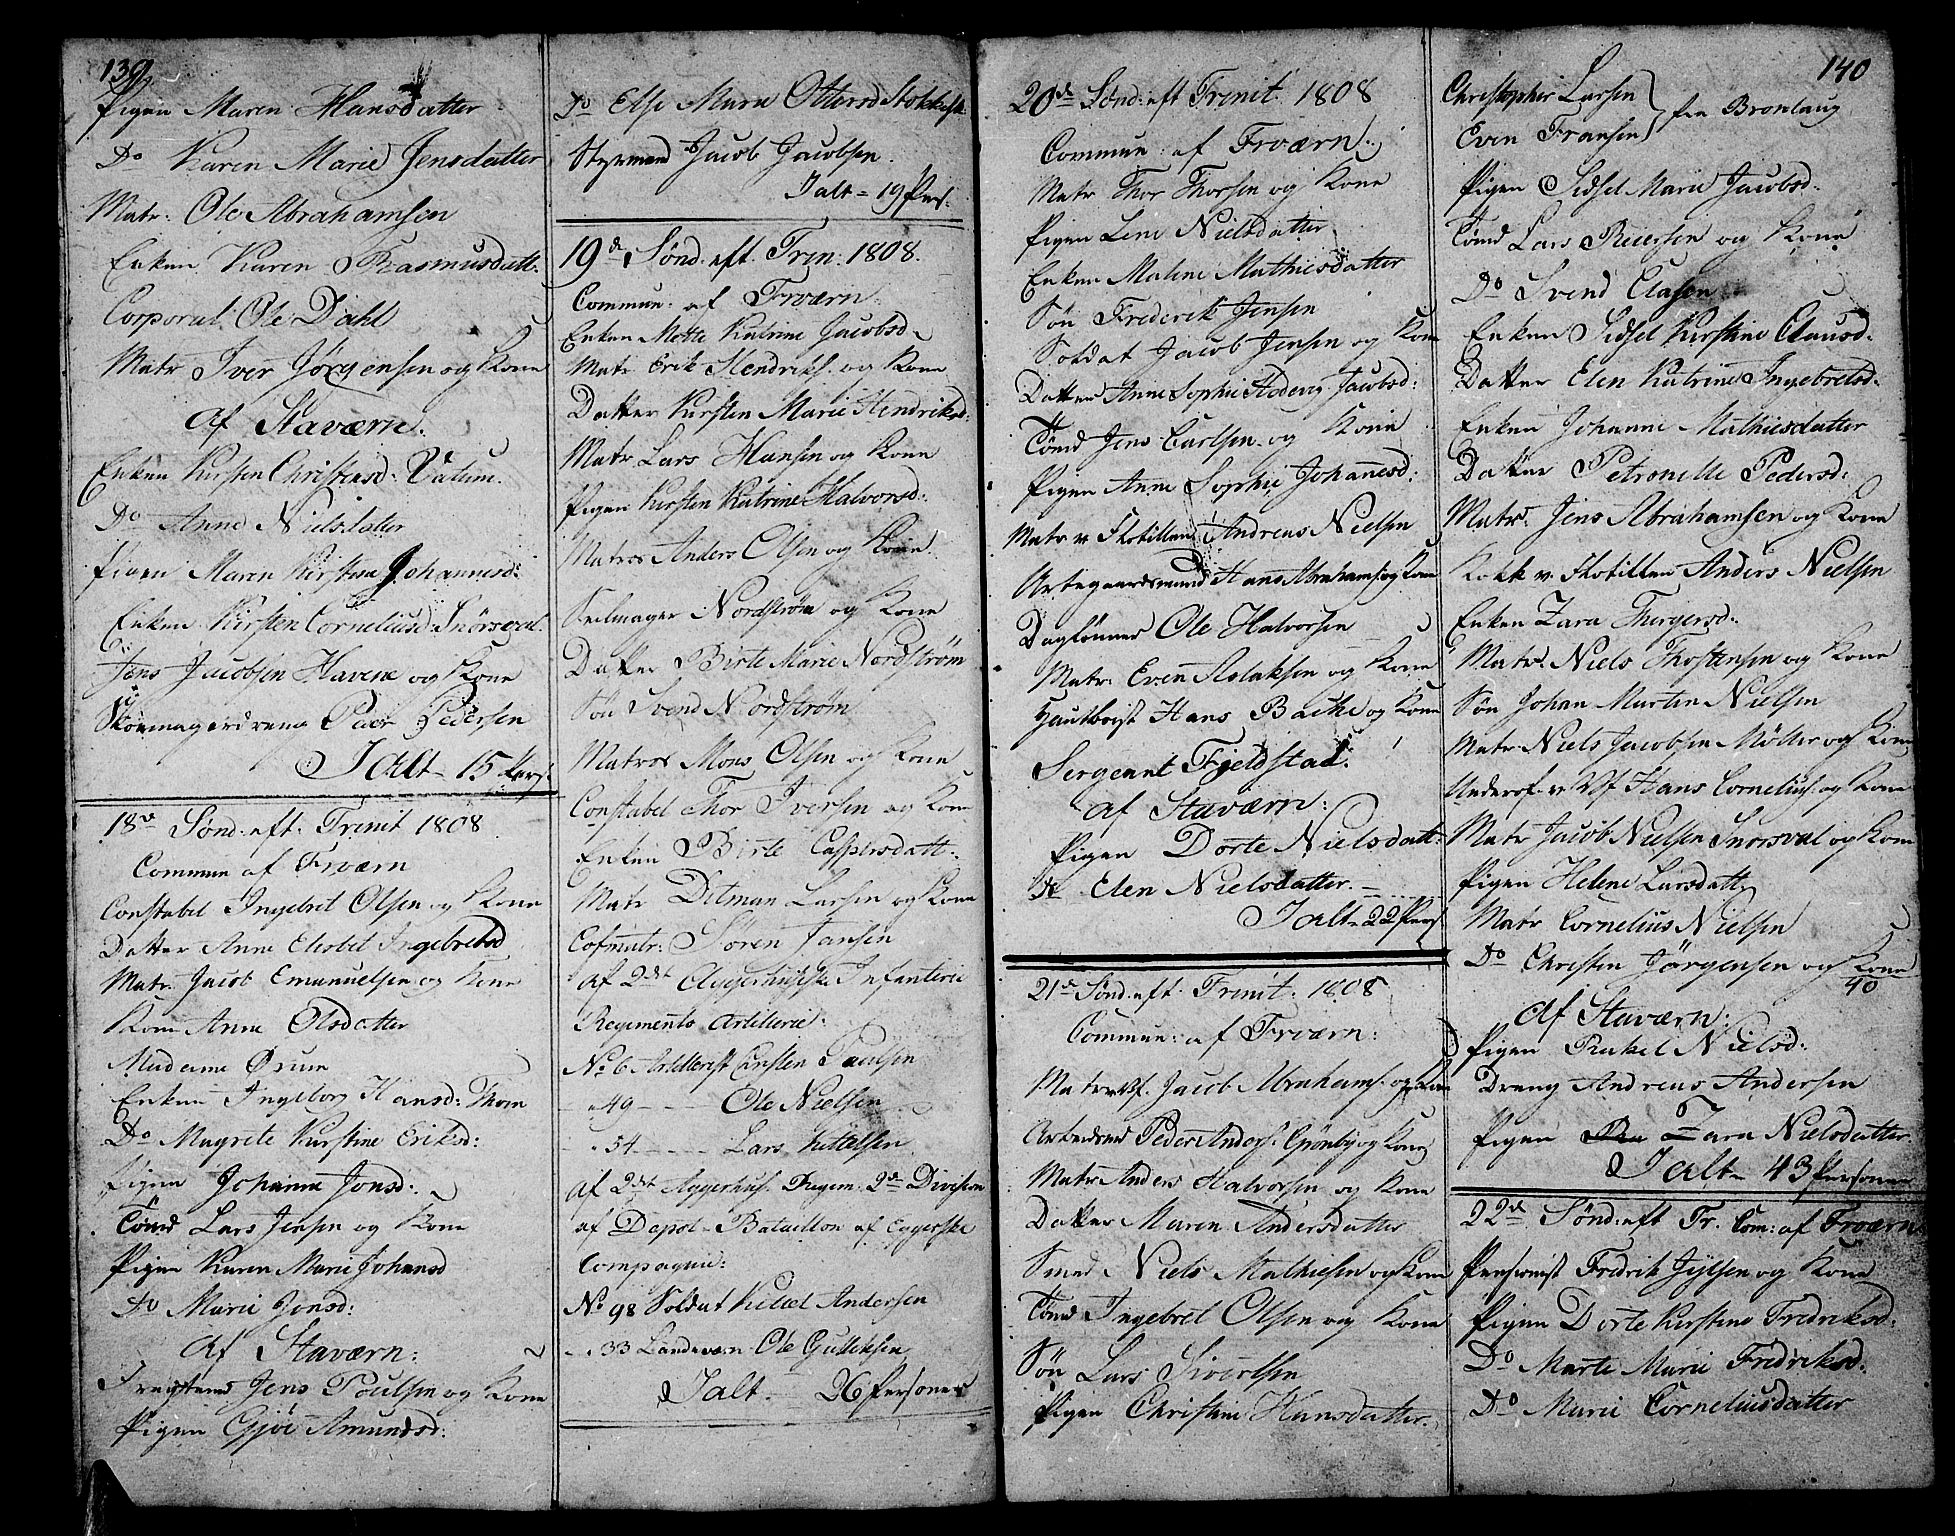 139
Pigen Maren Hansdatter
Do Karen Marie Jensdatter
Matr: Ole Abrahamsen
Enken Karen Rasmusdatt.
Corporal Ole Dahl
Matr Iver Jørgensen og Kone
Af Staværn.
Enken Kirsten Christensd:
Do Anne Nielsdater
Pigen Maren Kirstine Johannesd:
Enken Kirsten Corneliusd: Snørsval.
Jens Jacobsen Havene og Kone
Skomagerdreng Peder Pedersen
I Alt - 15 Pers.
18de Sønd. eft. Trinit 1808
Commun af Frværn
Constabel Ingebret Olsen og Kone
Datter Anne Elisabet Ingebretsd
Matr. Jacob Emanuelsen og Kone
Kone Anne Olsdatter
Madame Ørum
Enken Ingeborg Hansd: Thom
Do Magrete Kirstine Eriksd:
Pigen Johanne Jonsd:
Tømd Lars Jensen og Kone
Pigen Karen Marie Johansd
Do Marie Jonsd:
Af Staværn:
Jens Poulsen og Kone
Pigen Gjøe Amundsd:
Do Else Maria Ottersd Stokkesti
Styrmand Jacob Jacobsen.
I alt = 19 Pers.
19de Sønd. eft. Trin: 1808.
Commun: af Frværn:
Enken Mette Katrine Jacobsd
Matr Erik Hendriks. og Kone
Datter Kirsten Marie Hendriksd:
Matr Lars Hansen og Kone
Pigen Kirsten Katrine Halvorsd:
Matros Anders Olsen og Kone.
Seilmager Nordstrøm og Kone
Datter Birte Marie Nordstrøm
Søn Svend Nordstrøm
Matros Mons Olsen og Kone
Constabel Thor Iversen og Kone
Enken Birte Caspersdatt.
Matr Ditman Larsen og Kone
Cofmatr: Søren Jansen
Af 2det Aggerhusiske Infanterie
Regiments Artillerie:
No 6 Artillerist Carsten Paulsen
- 49 - - - Ole Nielsen
- 54 - - - Lars Kittelsen
Af 2det Aggerhus. Regem: 2de Division
af Depot-Bataillon af Eggerske
Compagnie:
No 98 Soldat Kittel Andersen
- 33 Landeværn Ole Gulleksen
I alt - 26 Personer
20de Sønd: eft Trinit. 1808
Commun: af Frværn:
Matr Thor Thorsen og Kone
Pigen Lene Nielsdatter
Enken Malene Mathiesdatter
Søn Frederik Jensen
Soldat Jacob Jensen og Kone
Datter Anne Sophie Hedevig Jacobsd:
Tømd Jens Carlsen og Kone
Pigen Anne Sophie Johannesd:
Matr v Flotillen Andreas Nielsen
Urtegaardsmand Hans Abrahams og Kone
Dagl̄ønner Ole Halvorsen
Matr. Even Aslaksen og Kone
Hautboist Hans Bache og Kone
Sergeant Fjeldstad.
Af Staværn:
Pigen Dorte Nielsdatt:
Do Elen Nielsdatter.
I alt - 22 Pers
21de Sønd: eft. Trinit. 1808
Commun: af Frværn:
Jacob Abrahams. og Kone
Peder Anders. Grønby og Kone
Matr Anders Halvorsen og Kone
Datter Maren Andersdatter
Smed Niels Mathiesen og Kone
Tømd Ingebret Olsen og Kone
Søn Lars Sivertsen
Pigen Christine Hansdatter.
140
Christopher Larsen
Even Fransen } fra Bronlaug
Pigen Sidsel Marie Jacobsd.
Tømd Lars Reiersen og Kone
Do Svend Clasen
Enken Sidsel Kirstine Clausd.
Datter Elen Katrine Ingebretsd.
Enken Johanne Mathiesdatter
Datter Petronelle Pedersd:
Matr. Jens Abrahamsen og Kone
Kokk v. Flotillen Anders Nielsen
Enken Zara Thorgersd:
Matr. Niels Thostensen og Kone
Søn Johan Martin Nielsen
Matr Niels Jacobsen Møller og Kone
Underof. v. Vf Hans Cornelius. og Kone
Matr Jacob Nielsen Snorsval og Kone
Pigen Helene Larsdatt
Matr Cornelius Nielsen
Do Christen Jørgensen og Kone
40
Af Staværn:
Pigen Rakel Nielsd:
Dreng Andreas Andersen
Pigen Zara Nielsdatter
I alt - 43 Personer
22de Sønd: eft Tr. Com: af Frværn
Pensionist Fredrik og Kone
Pigen Dorte Kirstine Fredriksd:
Do Marte Marie Fredriksd.
Do Marie Corneliusdatter